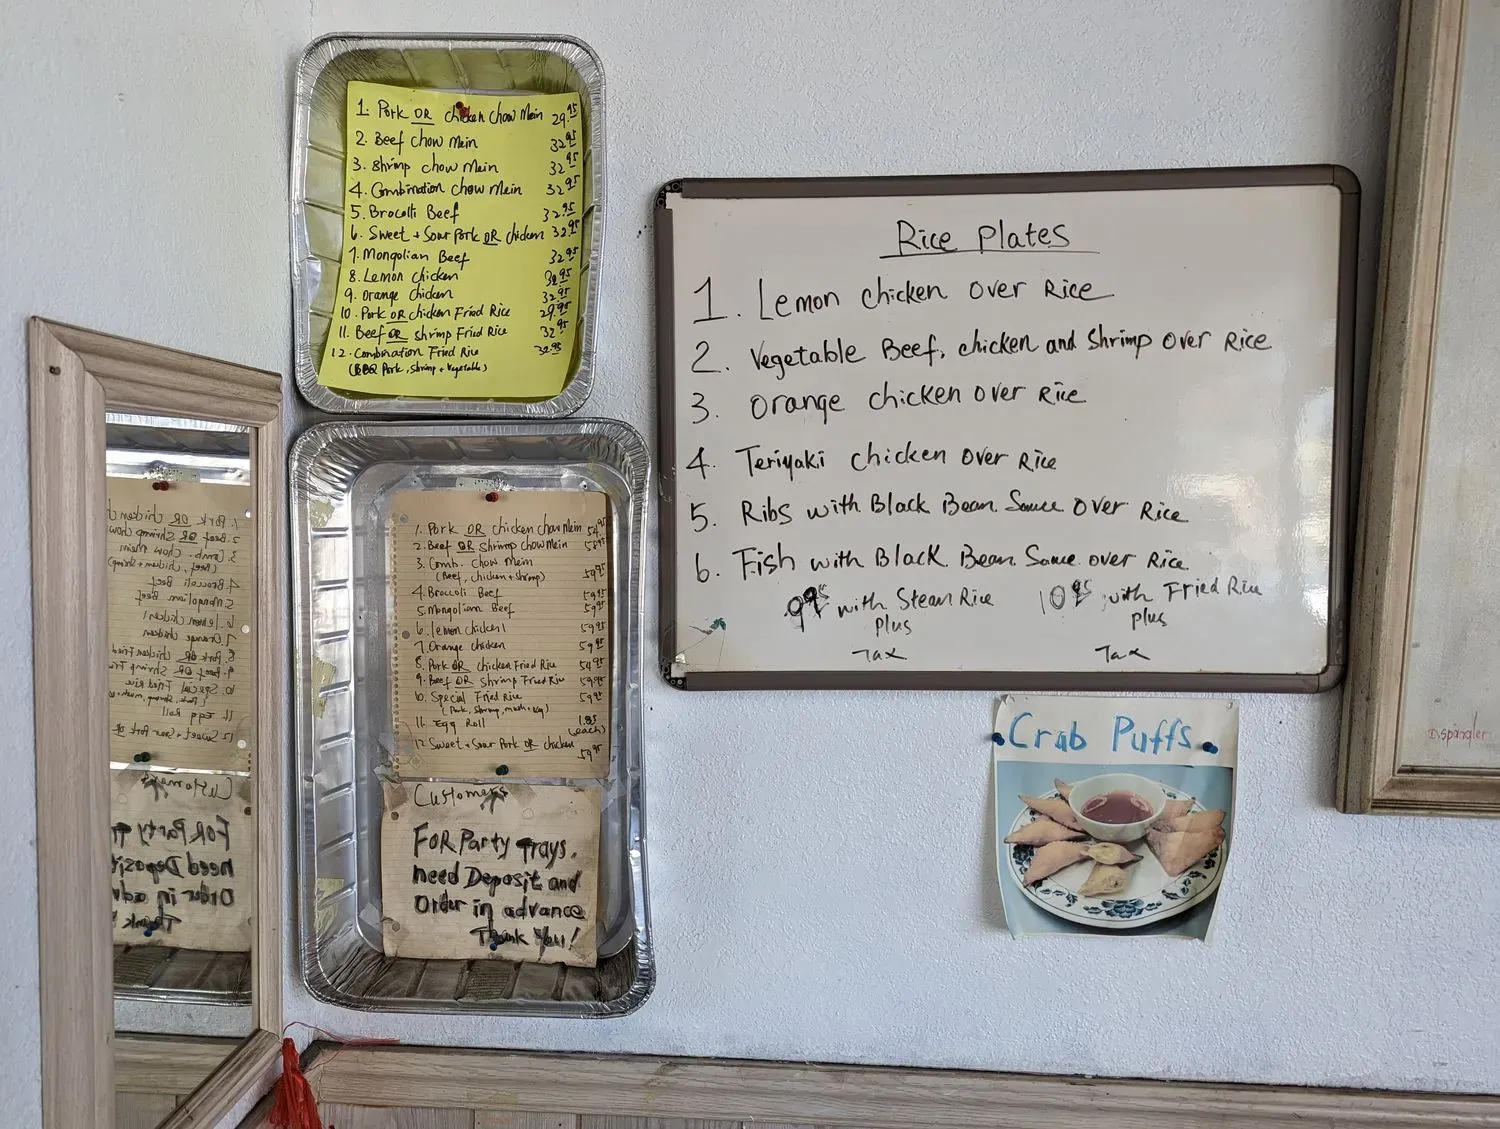 1. Pork OR chicken chow Mein 29.95
2. Beef chow Mein 32.95
3. Shrimp chow Mein 32.95
4. Combination chow Mein 32.95
5. Brocolli Beef 32.95
6. Sweet + Sour Pork OR chicken 32.95
7. Mongolian Beef 32.95
8. Lemon chicken 32.95
9. Orange chicken 32.95
10. Pork OR chicken Fried Rice 29.95
11. Beef OR shrimp Fried Rice 32.95
12. Combination Fried Rice 32.95
(BBQ Pork, Shrimp + Vegetable)
1. Pork OR chicken chow Mein 54.95
2. Beef OR Shrimp Chow Mein 59.95
3. Comb. Chow Mein
(Beef, chicken + Shrimp) 59.95
4. Broccoli Beef 59.95
5. Mongolian Beef 59.95
6. lemon chicken 59.95
7. Orange chicken 59.95
8. Pork OR chicken Fried Rice 54.95
9. Beef OR Shrimp Fried Rice 59.95
10. Special Fried Rice 59.95
(Pork, Shrimp, mush + veg)
11. Egg Roll 1.85
(each)
12. Sweet + Sour Pork OR chicken
59.95
Customers
FOR Party Trays,
need Deposit and
Order in advance
Thank You!
Rice Plates
1. Lemon chicken over Rice
2. Vegetable Beef, chicken and Shrimp over Rice
3. Orange chicken over Rice
4. Teriyaki chicken over Rice
5. Ribs with Black Bean Sauce over Rice
6. Fish with Black Bean Sauce over Rice
9.95 with Steam Rice
plus
Tax
10.95 with Fried Rice
plus
Tax
Crab Puffs
D. Spangler